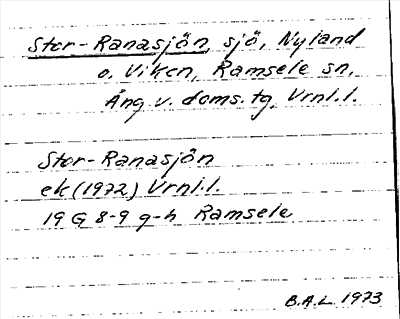 Stor-Ranasjön, sjö, Nyland
o. Viken, Ramsele sn,
Ång. v. doms. tg, Vrnl.l.
Stor-Ranasjön
ek (1972) Vrnl.l.
19 G 8-9 g-h Ramsele
B.A.L 1973